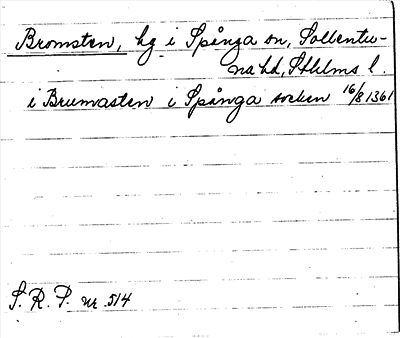 Bromsten, hg i Spånga sn, Sollentu-
na hd, Sthlms l.
i Brumasten i Spånga socken 16/8 1361
S. R. P. nr 514